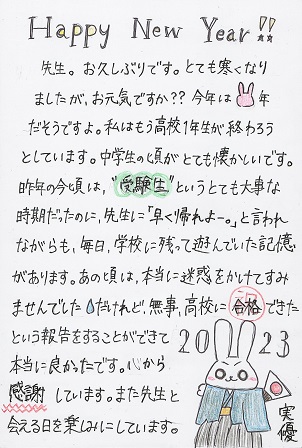 Happy New Year!!
先生。お久しぶりです。とても寒くなり
ましたが、お元気ですか?? 今年は🐰年
だそうですよ。私はもう高校1年生が終わろう
としています。中学生の頃がとても懐かしいです。
昨年の今頃は、"受験生"というとても大事な
時期だったのに、先生に「早く帰れよー。」と言われ
ながらも、毎日、学校に残って遊んでいた記憶
があります。あの頃は、本当に迷惑をかけてすみ
ませんでした💧だけれど、無事、高校に合格できた
という報告をすることができて
本当に良かったです。心から
感謝しています。また先生と
会える日を楽しみにしています。
2023
実優